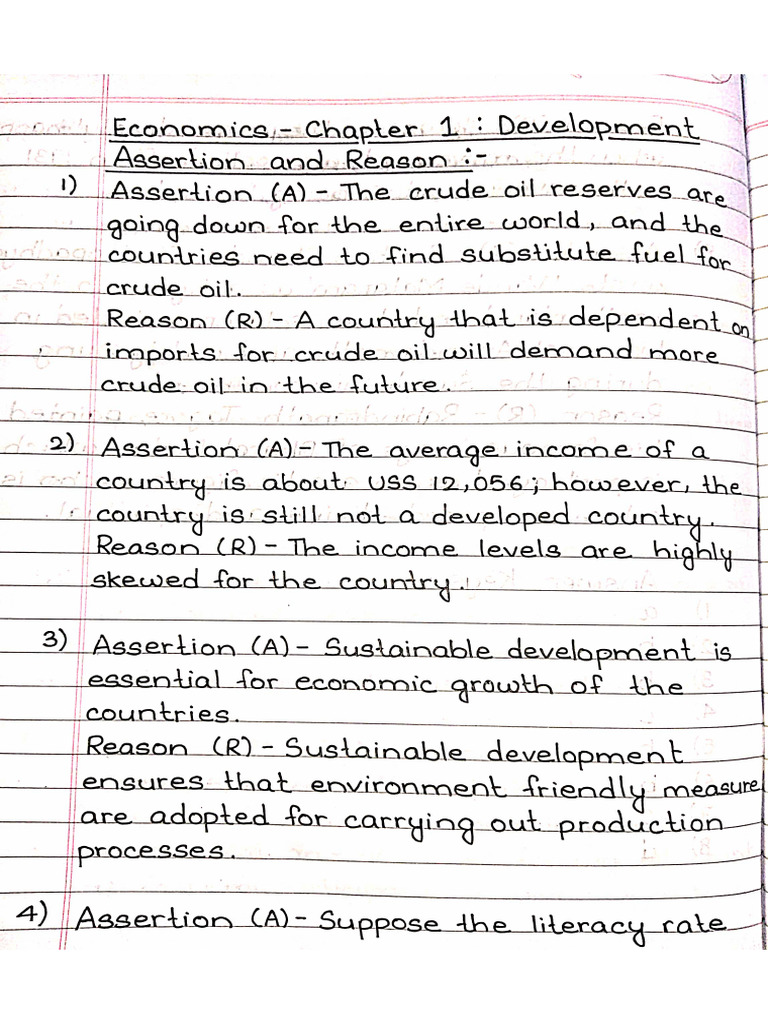 Economics - Chapter 1 : Development
Assertion and Reason :-
1) Assertion (A) - The crude oil reserves are
going down for the entire world, and the
countries need to find substitute fuel for
crude oil.
Reason (R) - A country that is dependent on
imports for crude oil will demand more
crude oil in the future.
2) Assertion (A) - The average income of a
country is about USS 12,056; however, the
country is still not a developed country.
Reason (R) - The income levels are highly
skewed for the country.
3) Assertion (A) - Sustainable development is
essential for economic growth of the
countries.
Reason (R) - Sustainable development
ensures that environment friendly measure
are adopted for carrying out production
processes.
4) Assertion (A) - Suppose the literacy rate